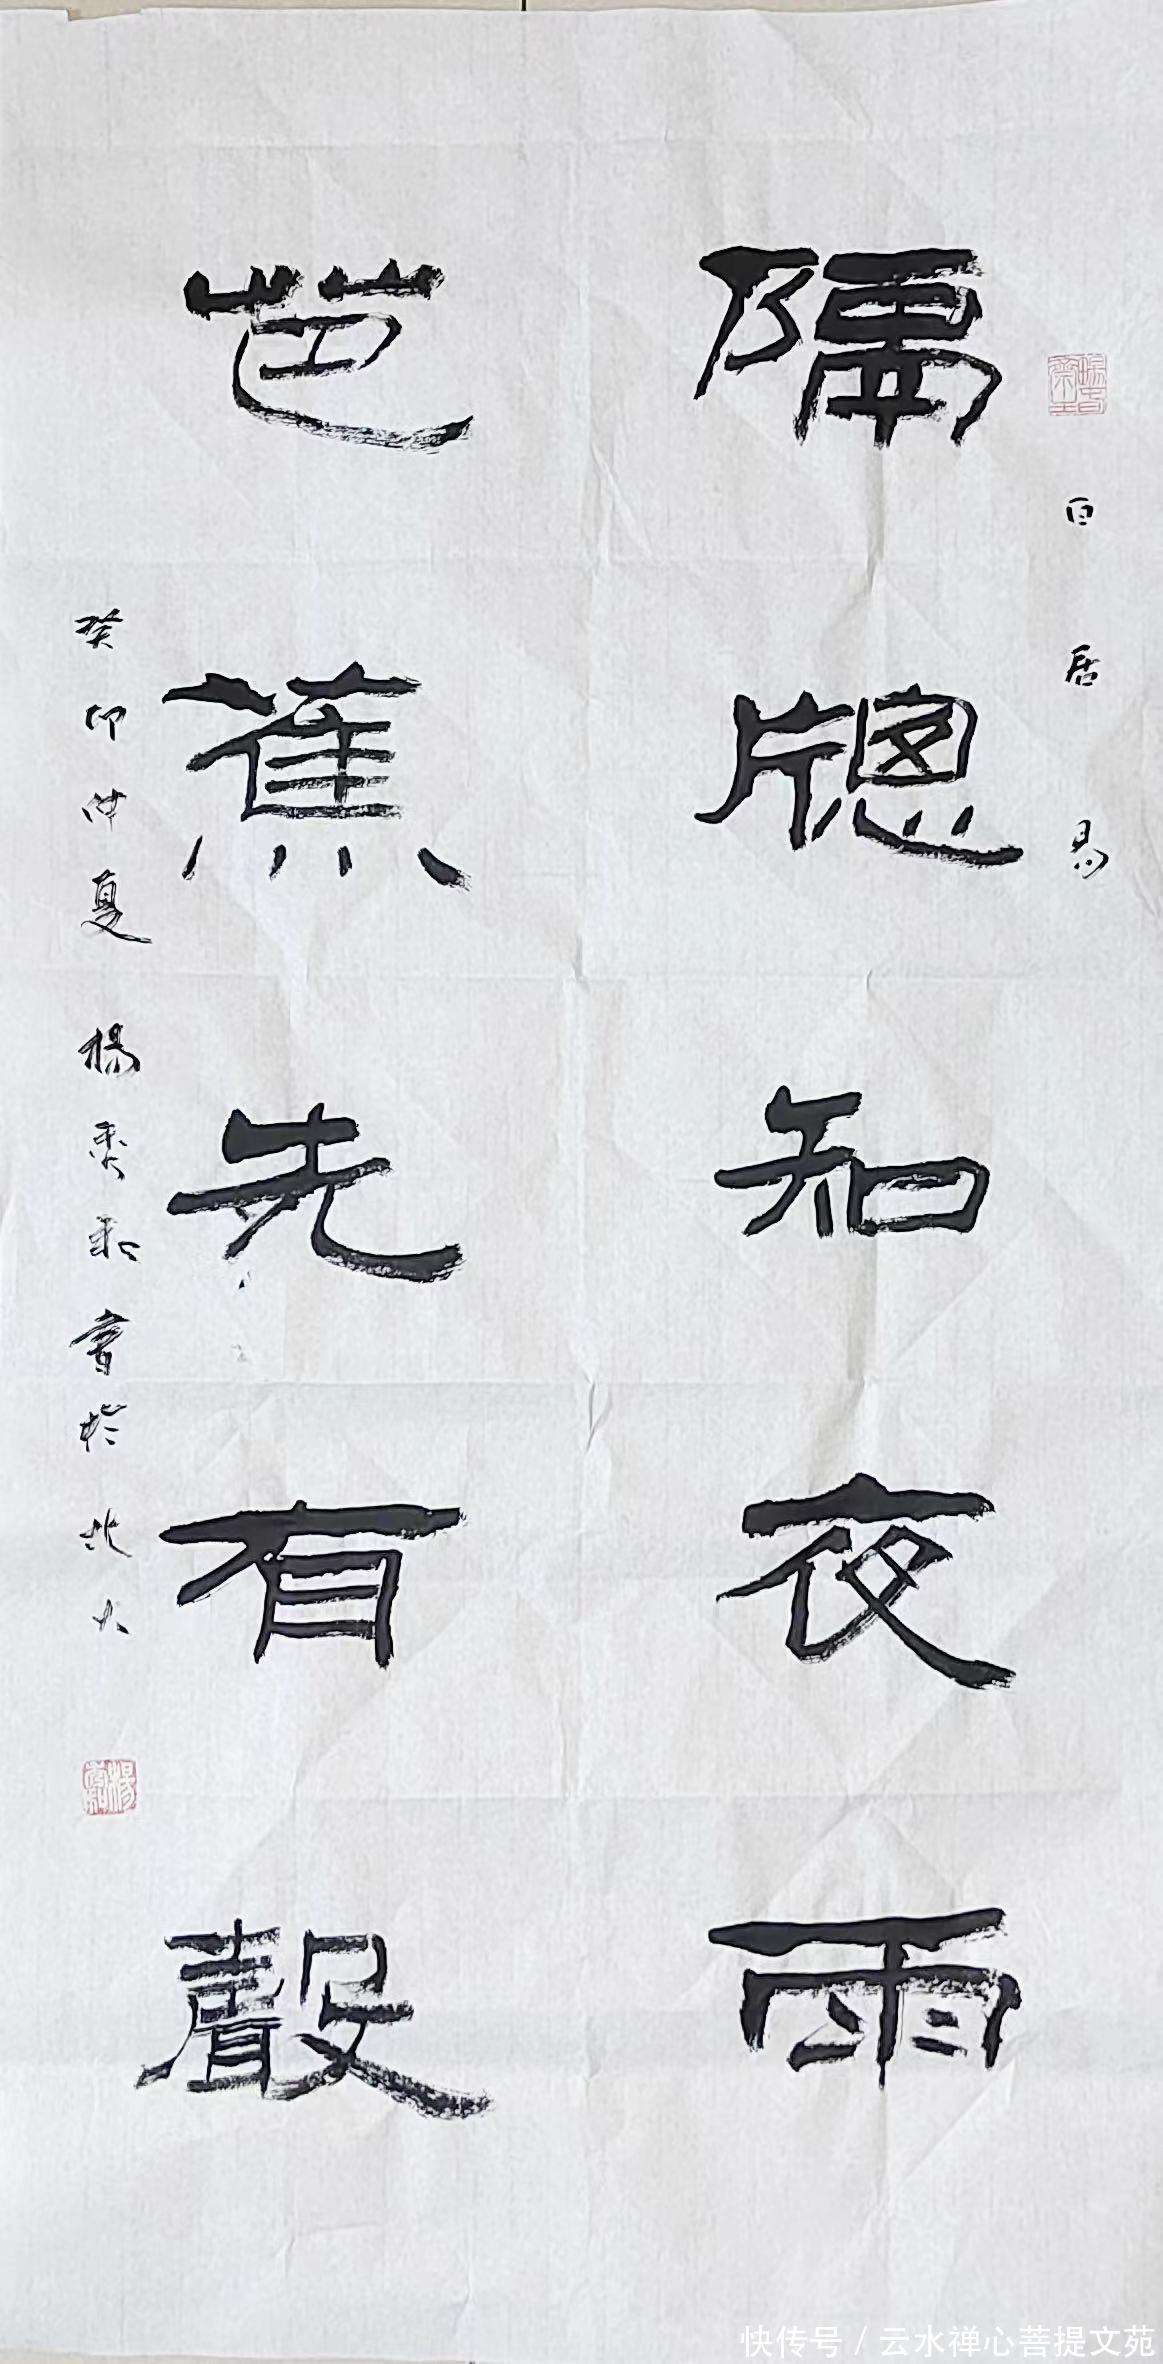 白居易
隔牎知夜雨
芭蕉先有聲
癸卯仲夏 楊秉和書於北大
快传号 / 云水禅心菩提文苑